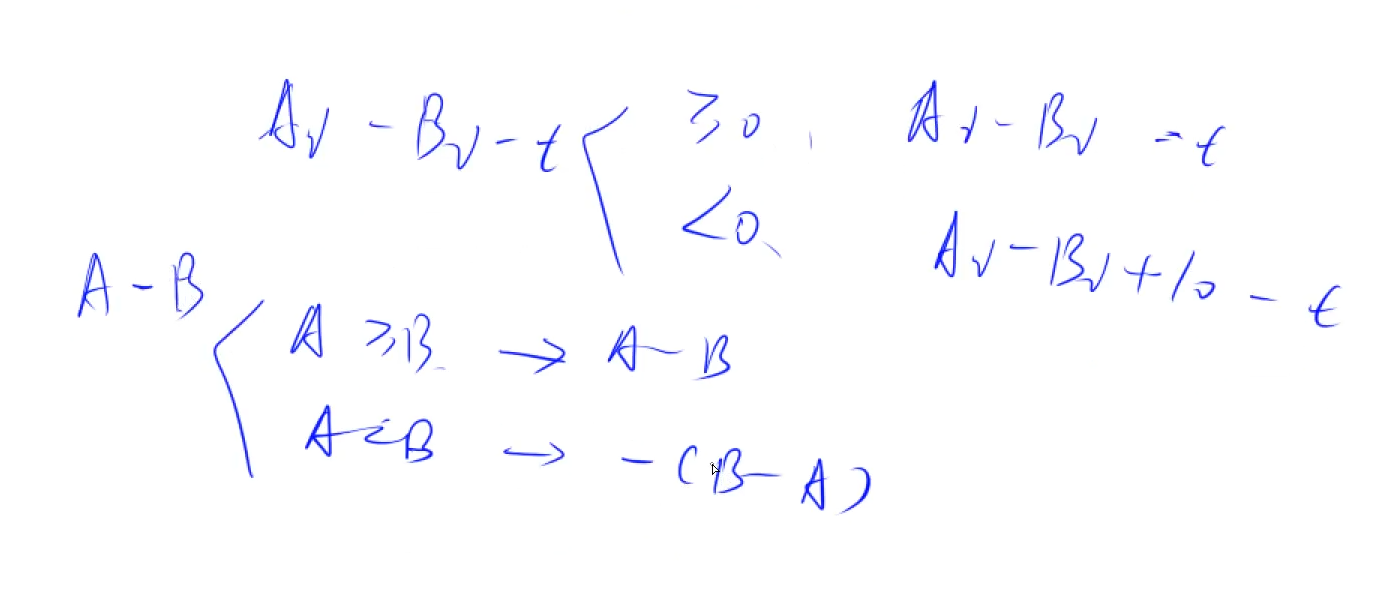 Av - Bv - t < ≥0, Av - Bv - t
<0, Av - Bv + 10 - t
A - B
A ≥ B → A - B
A < B → -(B - A)